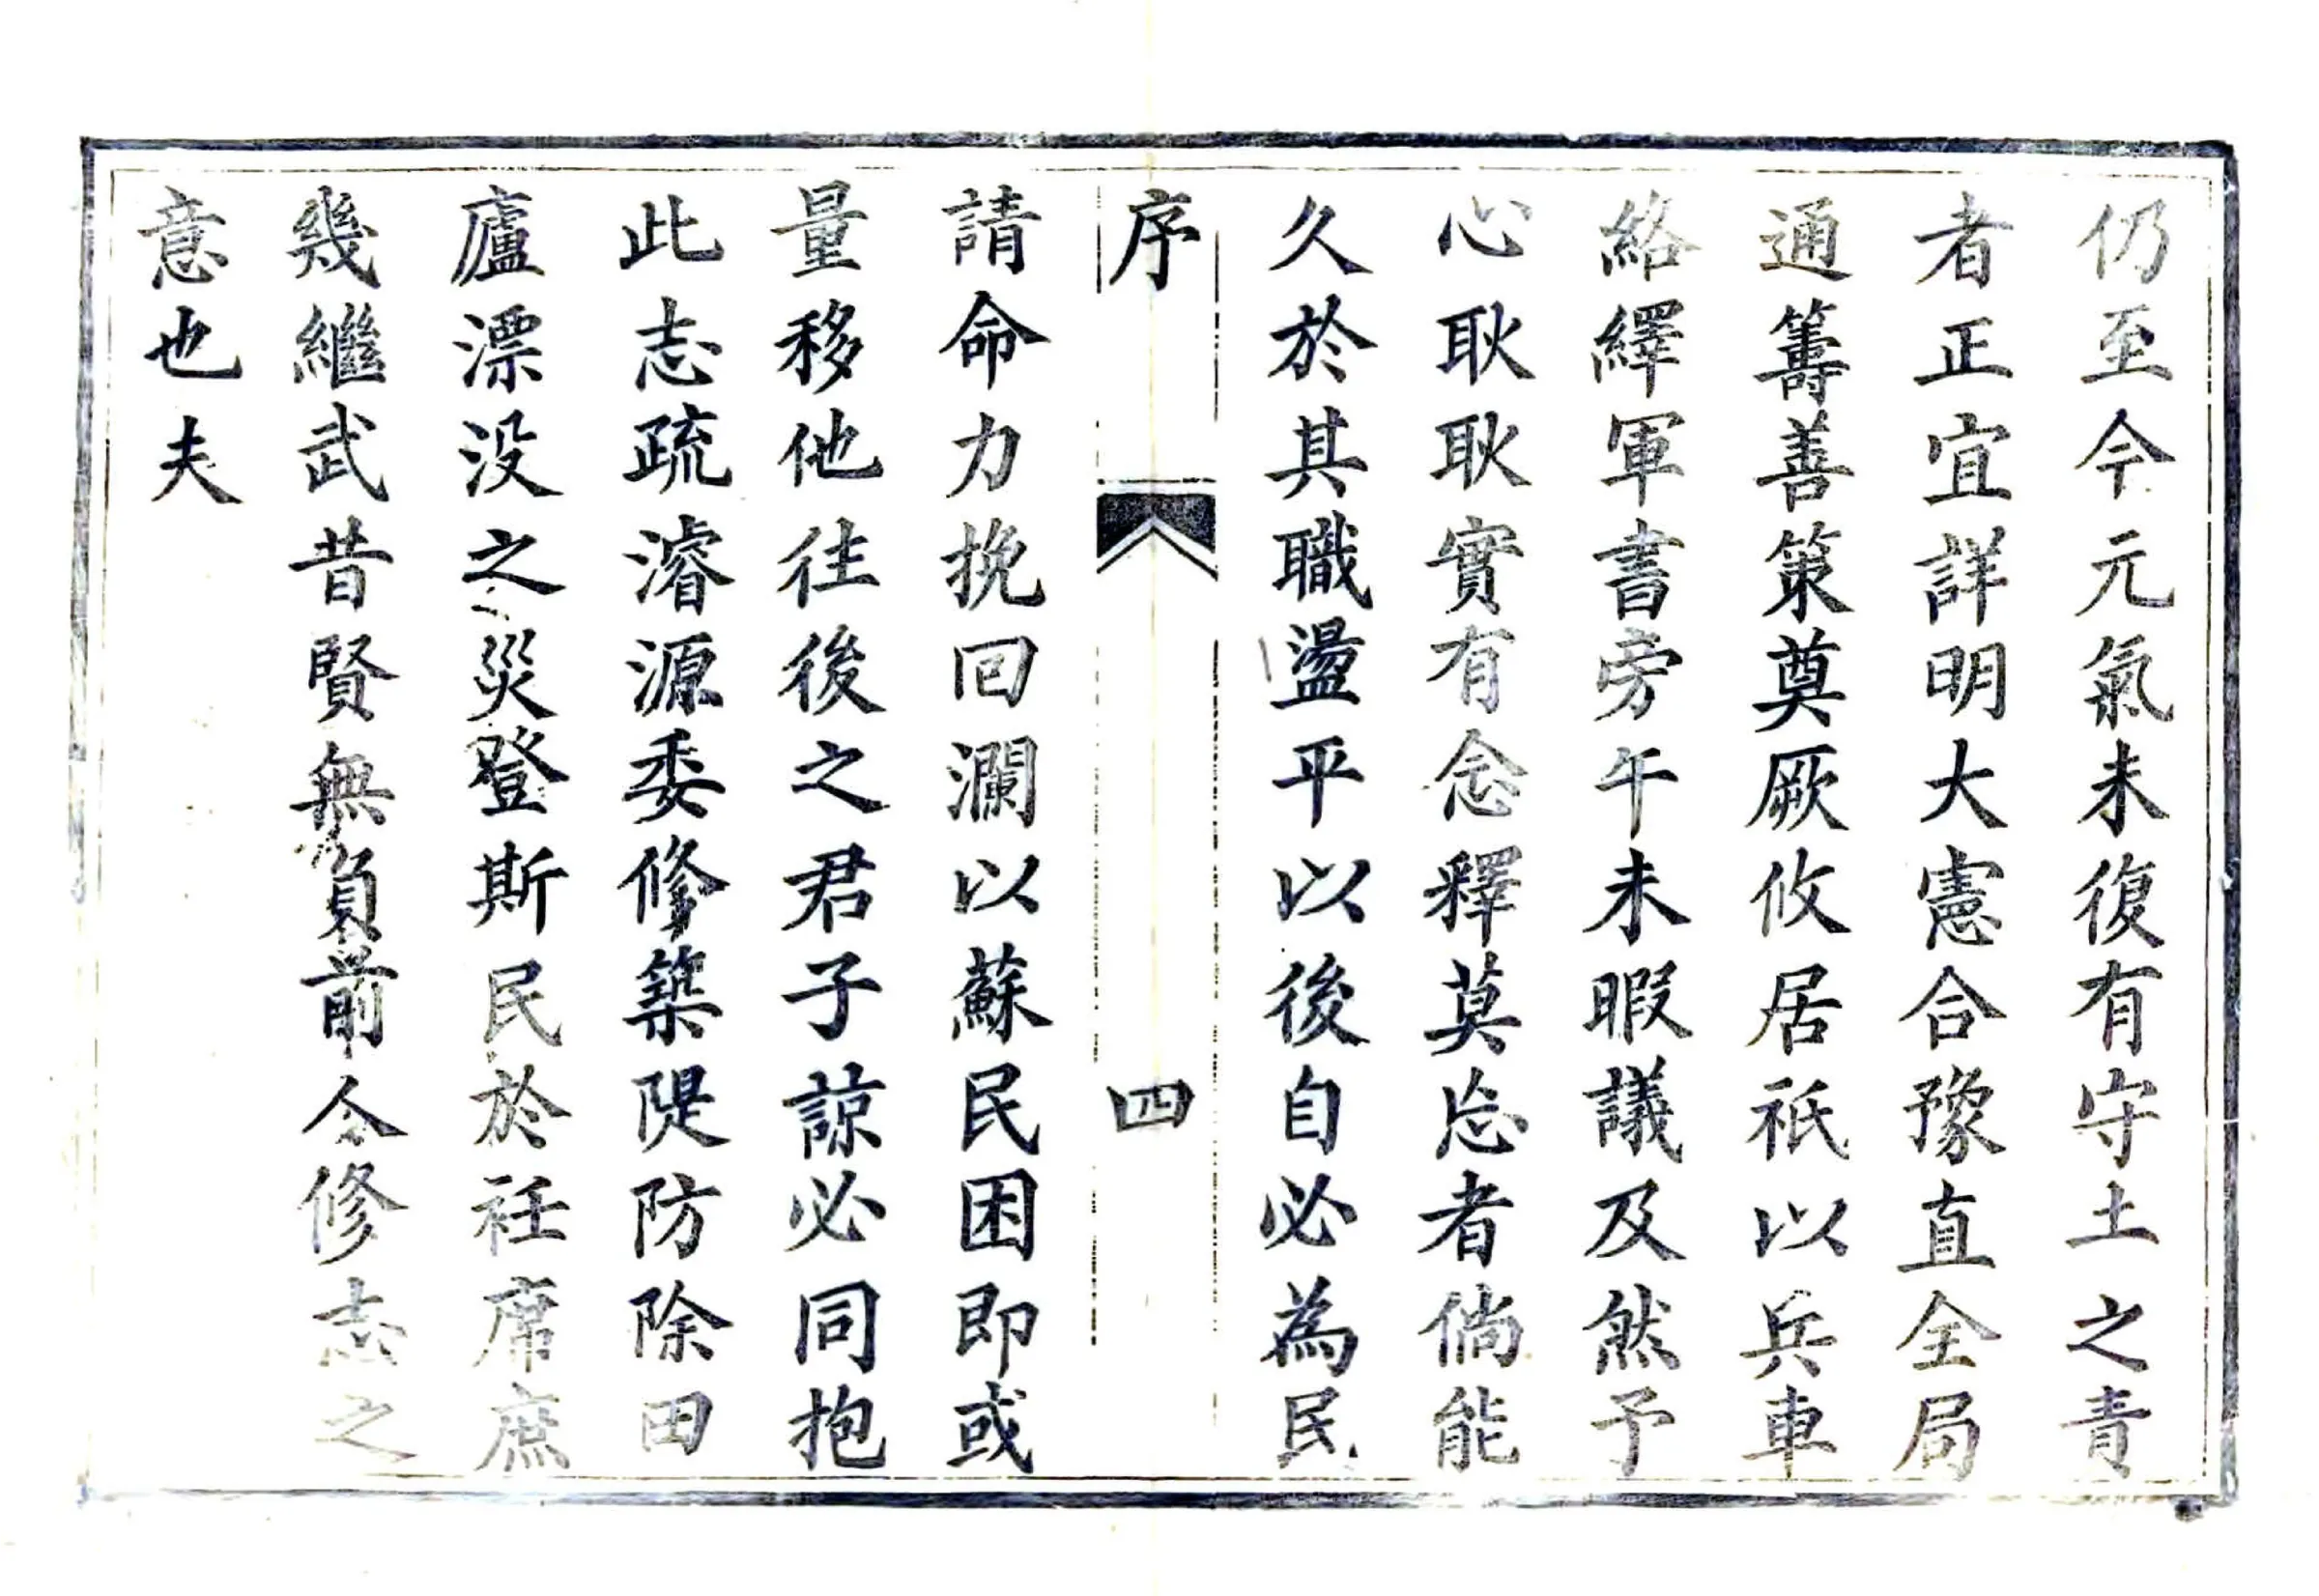 仍至今元氣未復有守土之青
者正宜詳明大憲合豫直全局
通籌善策奠厥攸居祇以兵車
絡繹軍書旁午未暇議及然予
心耿耿實有念釋莫忘者倘能
久於其職盪平以後自必為民
序 四
請命力挽回瀾以蘇民困即或
量移他往後之君子諒必同抱
此志疏濬源委修築隄防除田
廬漂没之災登斯民於衽席庶
幾繼武昔賢無負前令修志之
意也夫